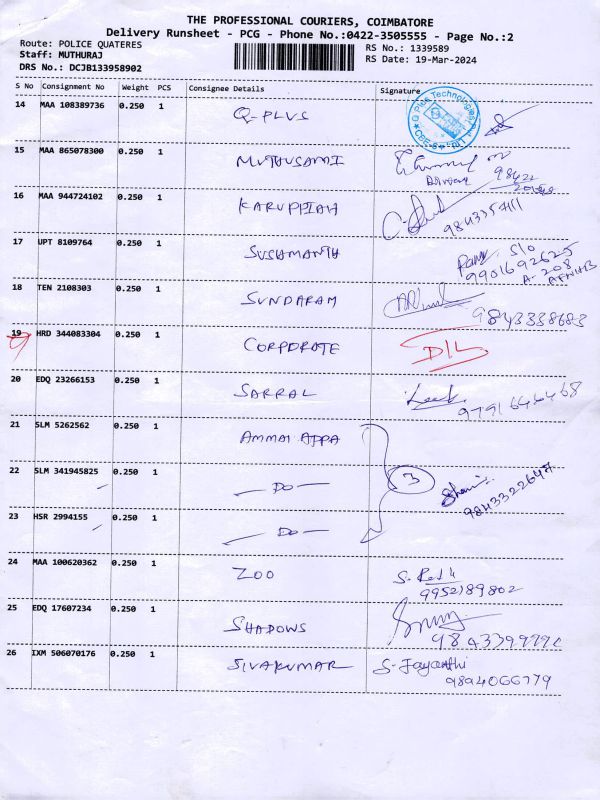 THE PROFESSIONAL COURIERS, COIMBATORE
Delivery Runsheet - PCG - Phone No.:0422-3505555 - Page No.:2
Route: POLICE QUATERES
RS No.: 1339589
Staff: MUTHURAJ
RS Date: 19-Mar-2024
DRS No.: DCJB133958902
S No Consignment No Weight PCS Consignee Details Signature
14 MAA 108389736 0.250 1 Q-PLUS
15 MAA 865078300 0.250 1 MUTHUSAMI
16 MAA 944724102 0.250 1 KARUPPIAH
17 UPT 8109764 0.250 1 SUSHMANTH S/o
9901692625
A-208
18 TEN 2108303 0.250 1 SUNDARAM
9843338683
19 HRD 344083304 0.250 1 CORPORATE D/L
20 EDQ 23266153 0.250 1 SARRAL
9791646468
21 SLM 5262562 0.250 1 AMMAI APPA
22 SLM 341945825 0.250 1 — DO — 3
9843322647
23 HSR 2994155 0.250 1 — DO —
24 MAA 100620362 0.250 1 ZOO
9952189802
25 EDQ 17607234 0.250 1 SHADOWS
26 IXM 506070176 0.250 1 SIVAKUMAR S-Jayanthi
9894066779